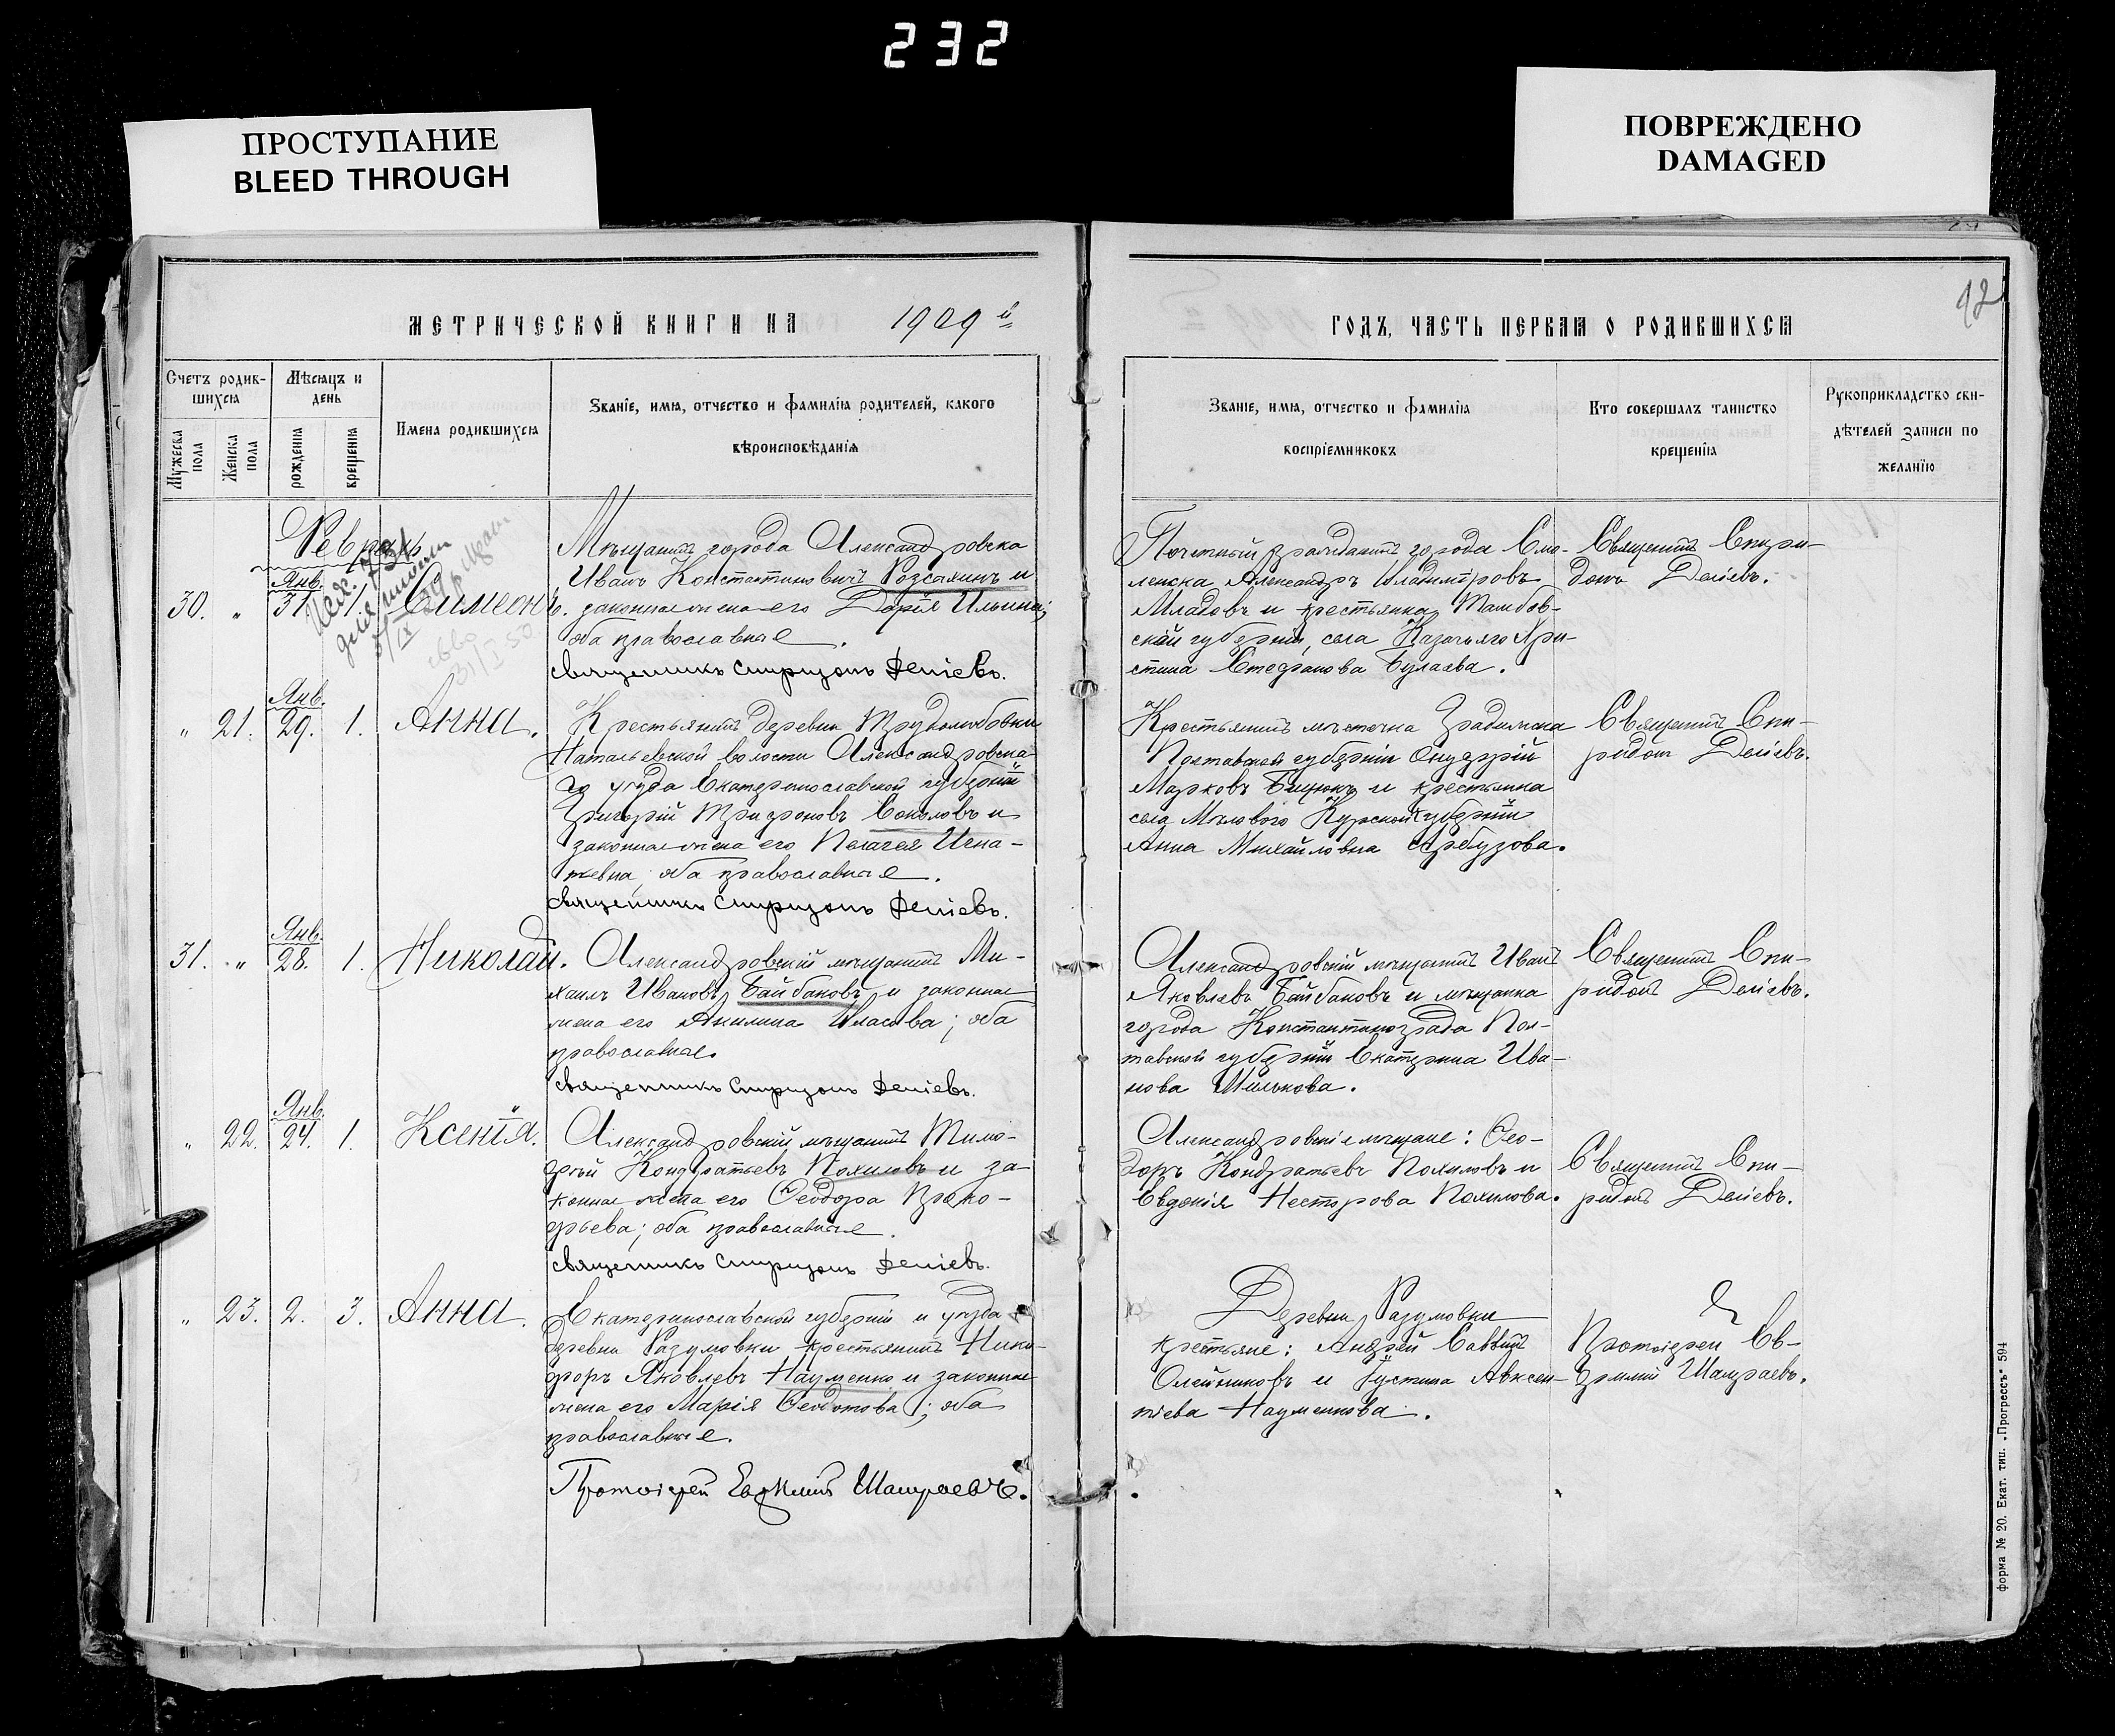 232
ПРОСТУПАНИЕ
BLEED THROUGH
ПОВРЕЖДЕНО
DAMAGED
92
МЕТРИЧЕСКОЙ КНИГИ НА 1909 й
ГОДЪ, ЧАСТЬ ПЕРВАЯ О РОДИВШИХСЯ
Счетъ родив-
шихся
Мужеска
пола
Женска
пола
Мѣсяцъ и
день
рожденія
крещенія
Имена родившихся
Званіе, имя, отчество и фамилія родителей, какого
вѣроисповѣданія
Званіе, имя, отчество и фамилія
воспріемниковъ
Кто совершалъ таинство
крещенія
Рукоприкладство сви-
дѣтелей записи по
желанію
Февраль
Янв.
30. " 31. 1. Симеонъ.
Мѣщанинъ города Александровска
Иванъ Константиновичъ и
законная жена его Дарія Ильина;
оба православные.
Священникъ Спиридонъ Деліевъ.
Почетный гражданинъ города Смо-
ленска Александръ Владиміровъ
Младовъ и крестьянка Тамбов-
ской губерніи, села Казачьяго Хри-
стина Стефанова Булаева.
Священникъ Спири-
донъ Деліевъ.
Янв.
" 21. 29. 1. Анна.
Крестьянинъ деревни Трудолюбовки
Натальевской волости Александровска-
го уѣзда Екатеринославской губерніи
Григорій Трифоновъ Соколовъ и
законная жена его Пелагея Игна-
тьевна, оба православные.
Священникъ Спиридонъ Деліевъ.
Крестьянинъ мѣстечка Градижска
Полтавской губерніи Онуфрій
Марковъ и крестьянка
села Мѣлового Курской губерніи
Анна Михайловна Арбузова.
Священникъ Спи-
ридонъ Деліевъ.
Янв.
31. " 28. 1. Николай.
Александровскій мѣщанинъ Ми-
хаилъ Ивановъ Байбаковъ и законная
жена его Акилина Власова; оба
православные.
Священникъ Спиридонъ Деліевъ.
Александровскій мѣщанинъ Иванъ
Яковлевъ Байбаковъ и мѣщанка
города Константинограда Пол-
тавской губерніи Екатерина Ива-
нова Милькова.
Священникъ Спи-
ридонъ Деліевъ.
Янв.
" 22. 24. 1. Ксенія.
Александровскій мѣщанинъ Тимо-
фей Кондратьевъ Похиловъ и за-
конная жена его Ѳеодора Проко-
фьева; оба православные.
Священникъ Спиридонъ Деліевъ.
Александровскіе мѣщане: Ѳео-
доръ Кондратьевъ Похиловъ и
Евдокія Нестерова Похилова.
Священникъ Спи-
ридонъ Деліевъ.
" 23. 2. 3. Анна.
Екатеринославской губерніи и уѣзда
деревни Разумовки крестьянинъ Ники-
форъ Яковлевъ Науменко и законная
жена его Марія Ѳеодотова; оба
православные.
Протоіерей Евфимій Шамраевъ.
Деревни Разумовки
крестьяне: Андрей Саввинъ
Олейниковъ и Іустина Авксен-
тіева Науменкова.
Протоіерей Ев-
фимій Шамраевъ.
форма № 20. Екат. тип. „Прогрессъ" 594